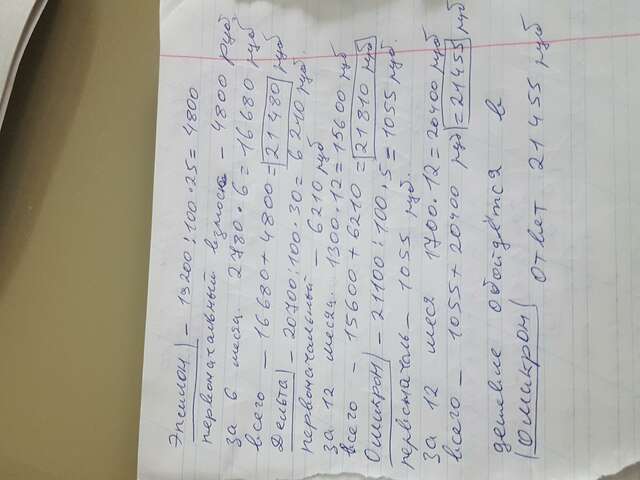 Эпсилон) - 19200 : 100 · 25 = 4800
первоначальный взнос - 4800 руб
за 6 месяц. 2780 · 6 = 16680 руб
всего - 16680 + 4800 = 21480 руб
Дельта) - 20700 : 100 · 30 = 6210 руб.
первоначальный - 6210 руб
за 12 месяц. 1300 · 12 = 15600 руб
всего - 15600 + 6210 = 21810 руб
Омикрон) - 21100 : 100 · 5 = 1055 руб.
первоначаль - 1055 руб.
за 12 меся 1700 · 12 = 20400 руб
всего - 1055 + 20400 руб = 21455 руб
дешевле обойдётся в
Омикрон) Ответ 21455 руб